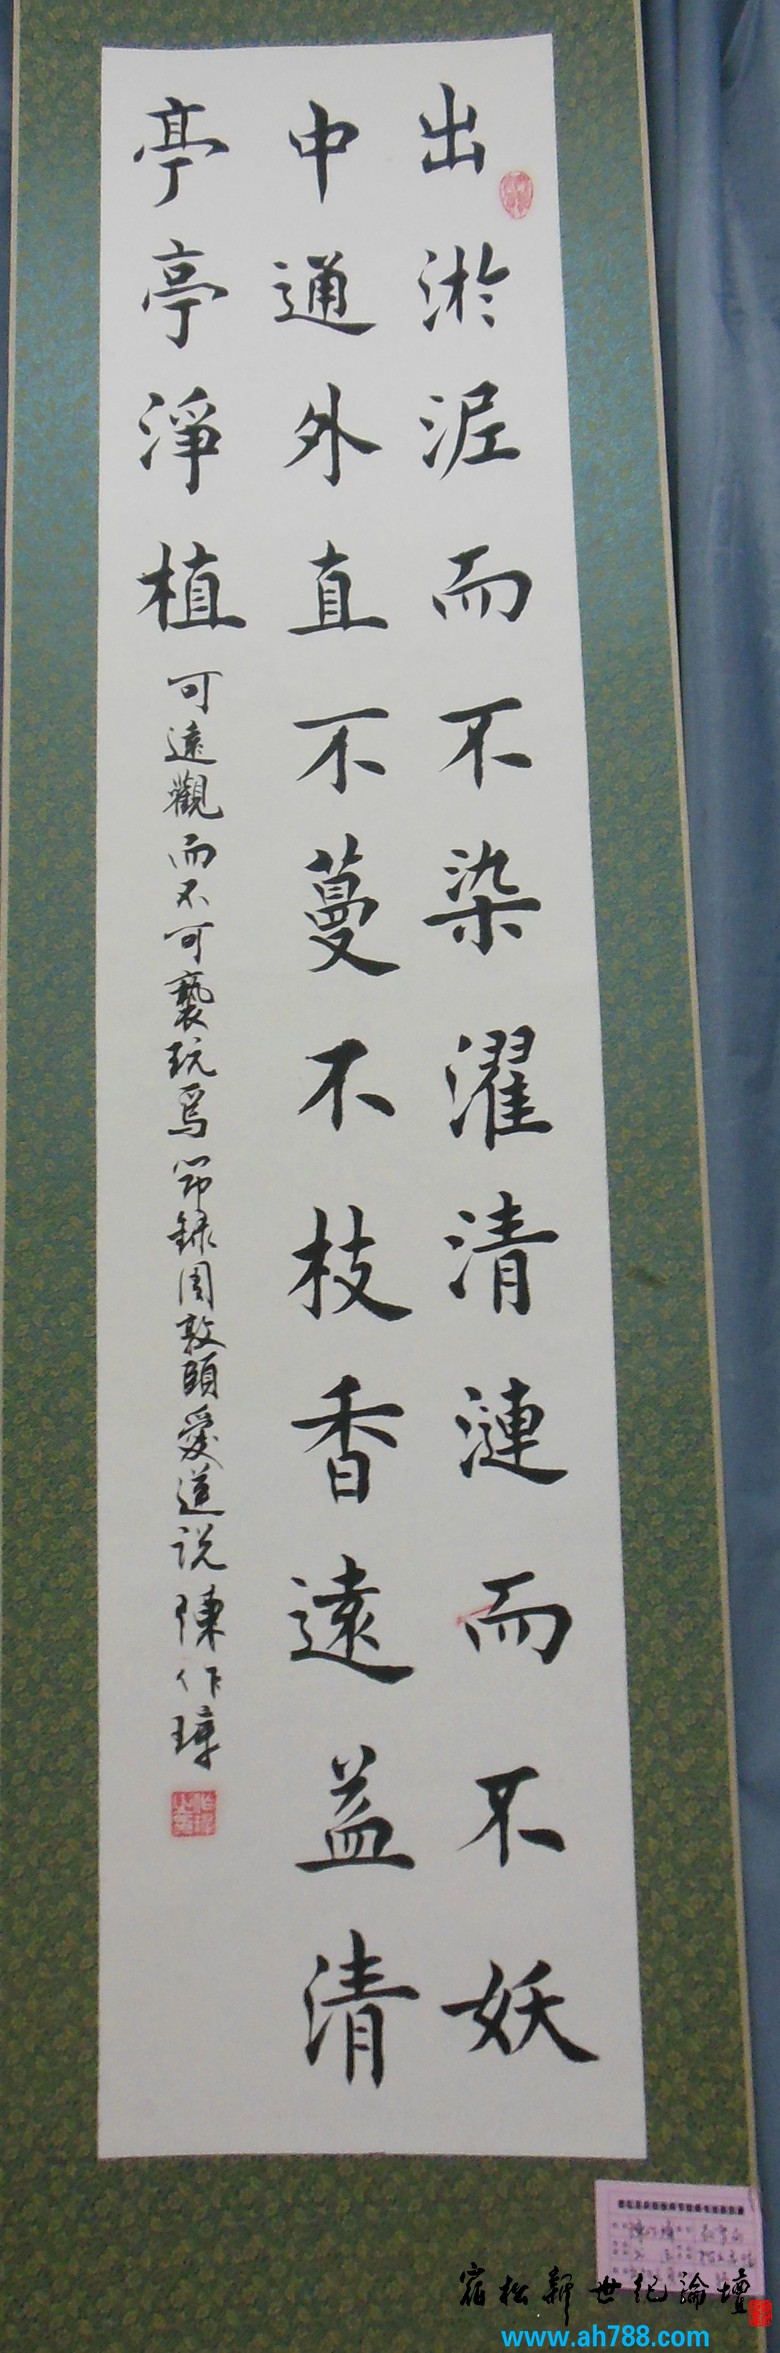 出淤泥而不染濯清漣而不妖
中通外直不蔓不枝香遠益清
亭亭淨植可遠觀而不可褻玩焉節録周敦頤愛蓮説陳作瑋
宿松新世紀論壇
www.ah788.com